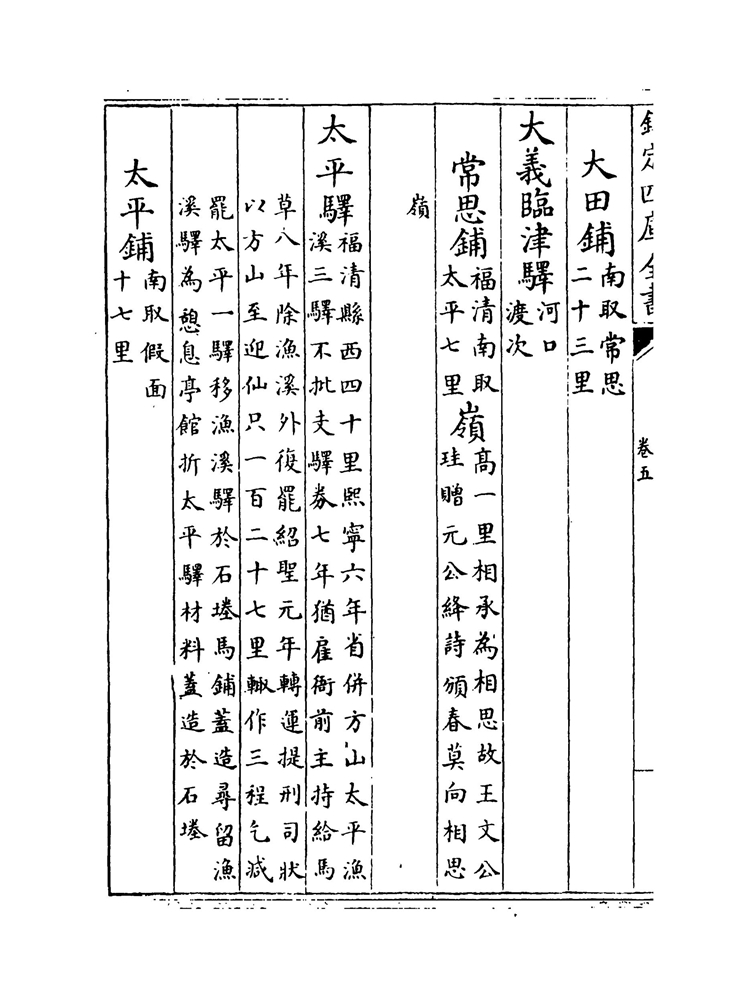 欽定四庫全書
卷五
大田鋪南取常思
二十三里
大義臨津驛河口
渡次
常思鋪福清南取
太平七里
嶺高一里相承為相思故王文公
珪贈元公絳詩頒春莫向相思
嶺
太平驛福清縣西四十里熙寧六年省併方山太平漁
溪三驛不批支驛券七年猶雇衙前主持給馬
草八年除漁溪外復罷紹聖元年轉運提刑司狀
以方山至迎仙只一百二十七里輙作三程乞減
罷太平一驛移漁溪驛於石墶馬鋪蓋造尋留漁
溪驛為憩息亭館折太平驛材料蓋造於石墶
太平鋪南取假面
十七里